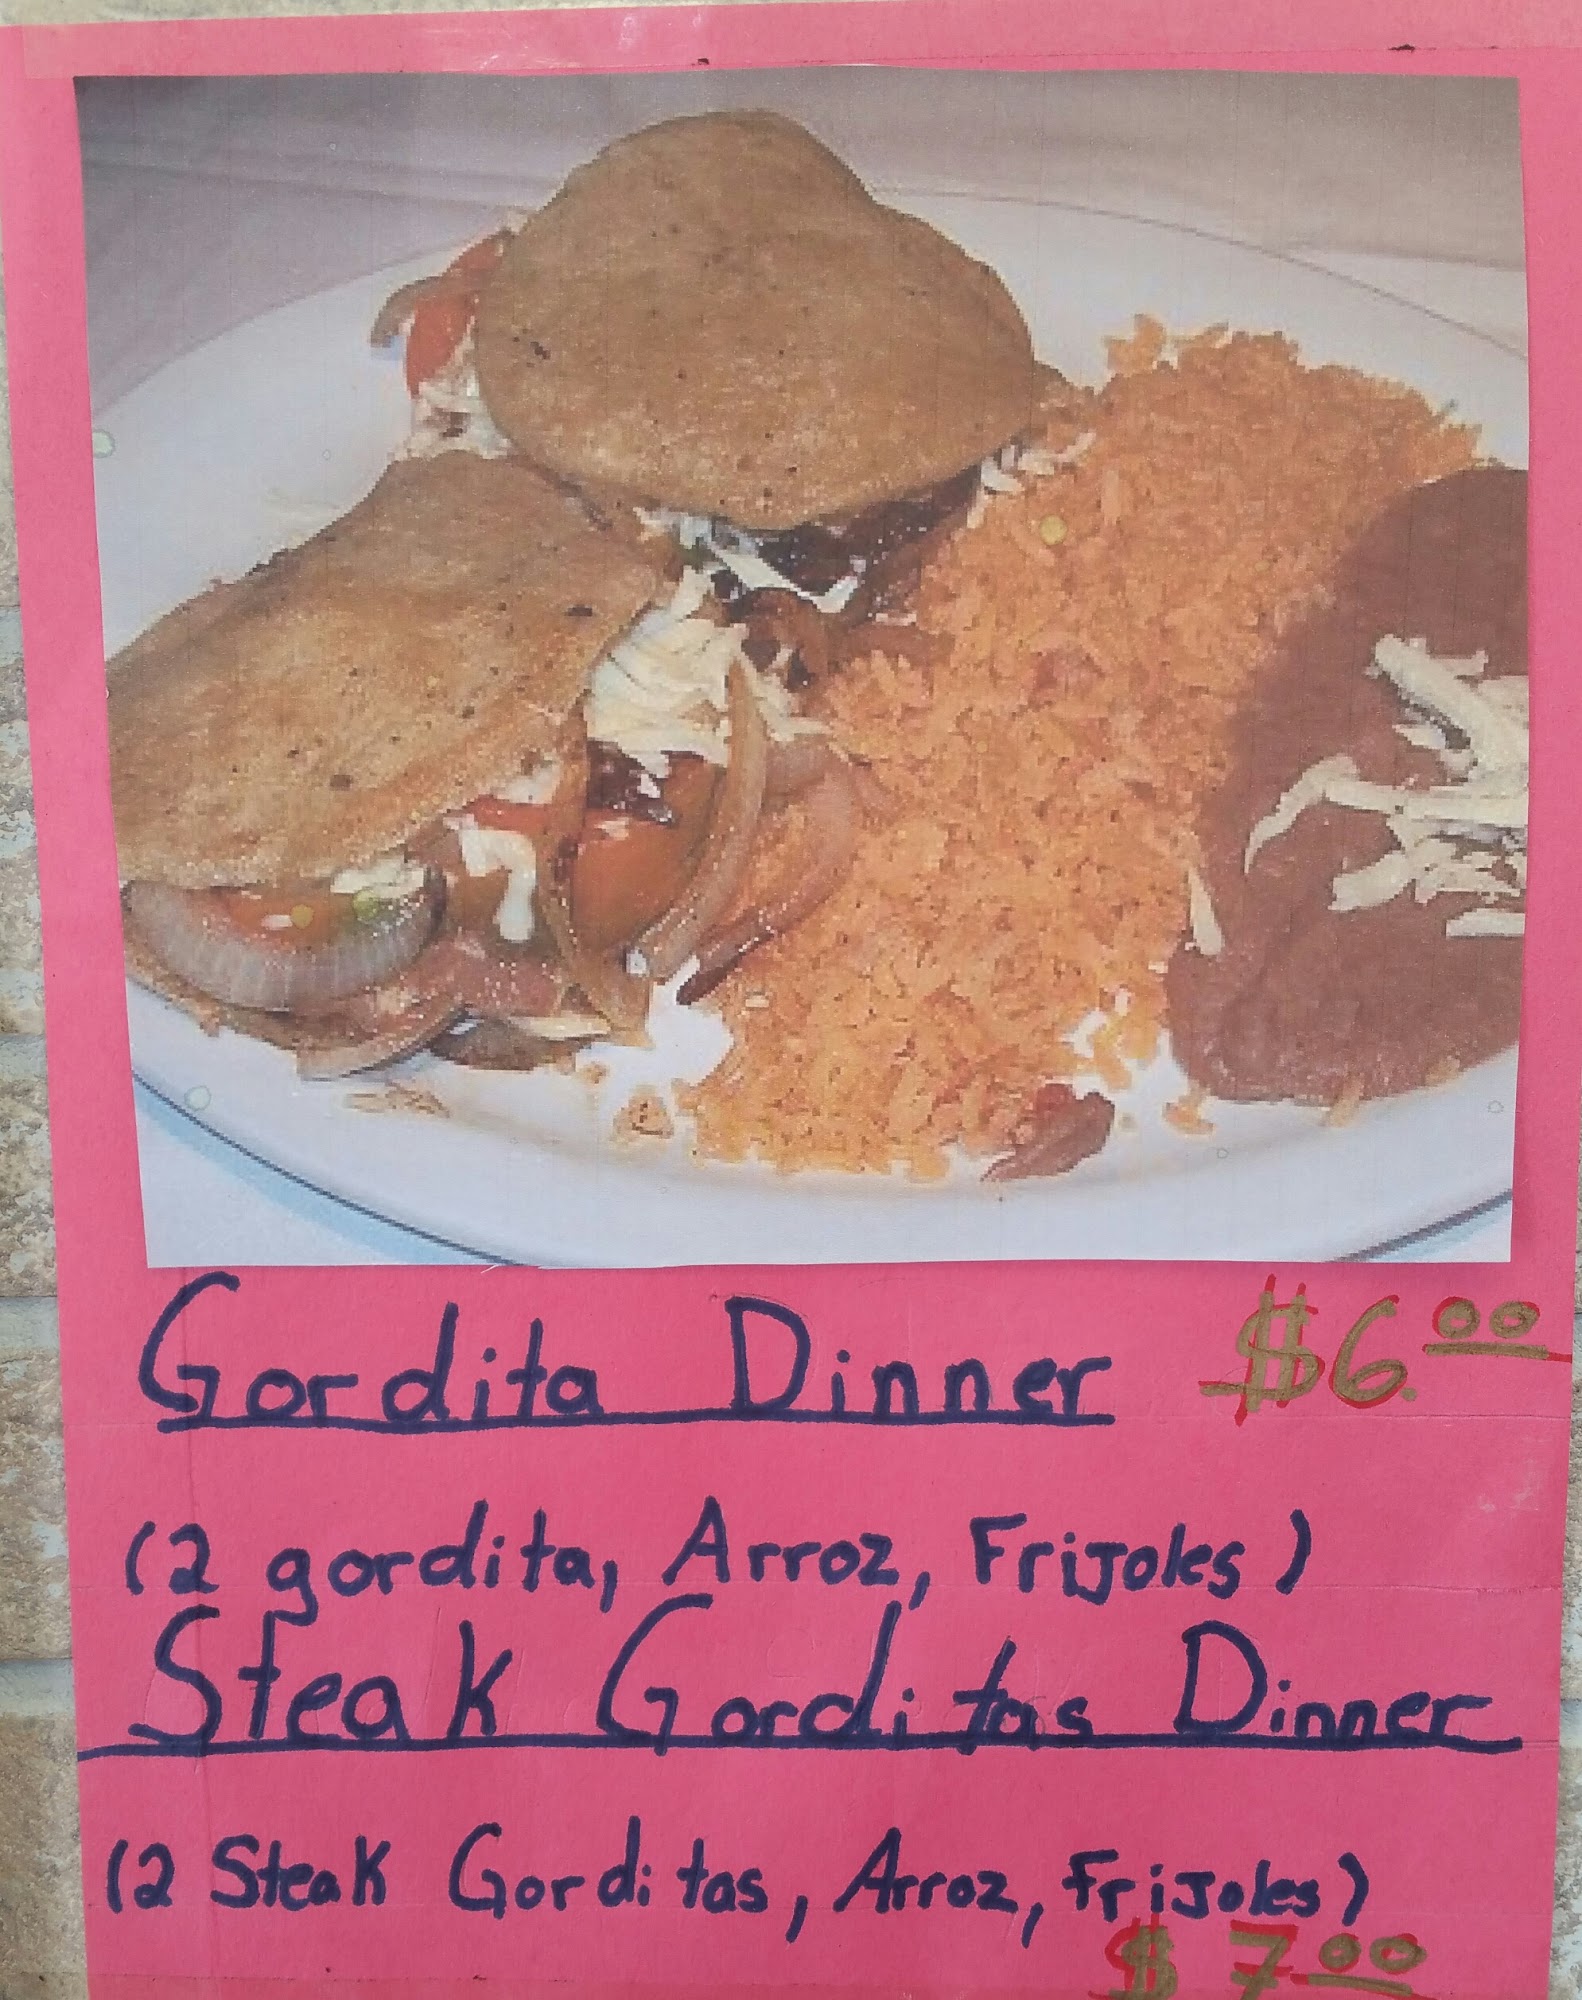 Gordita Dinner $6.00
(2 gordita, Arroz, Frijoles)
Steak Gorditas Dinner
(2 Steak Gorditas, Arroz, Frijoles)
$7.00